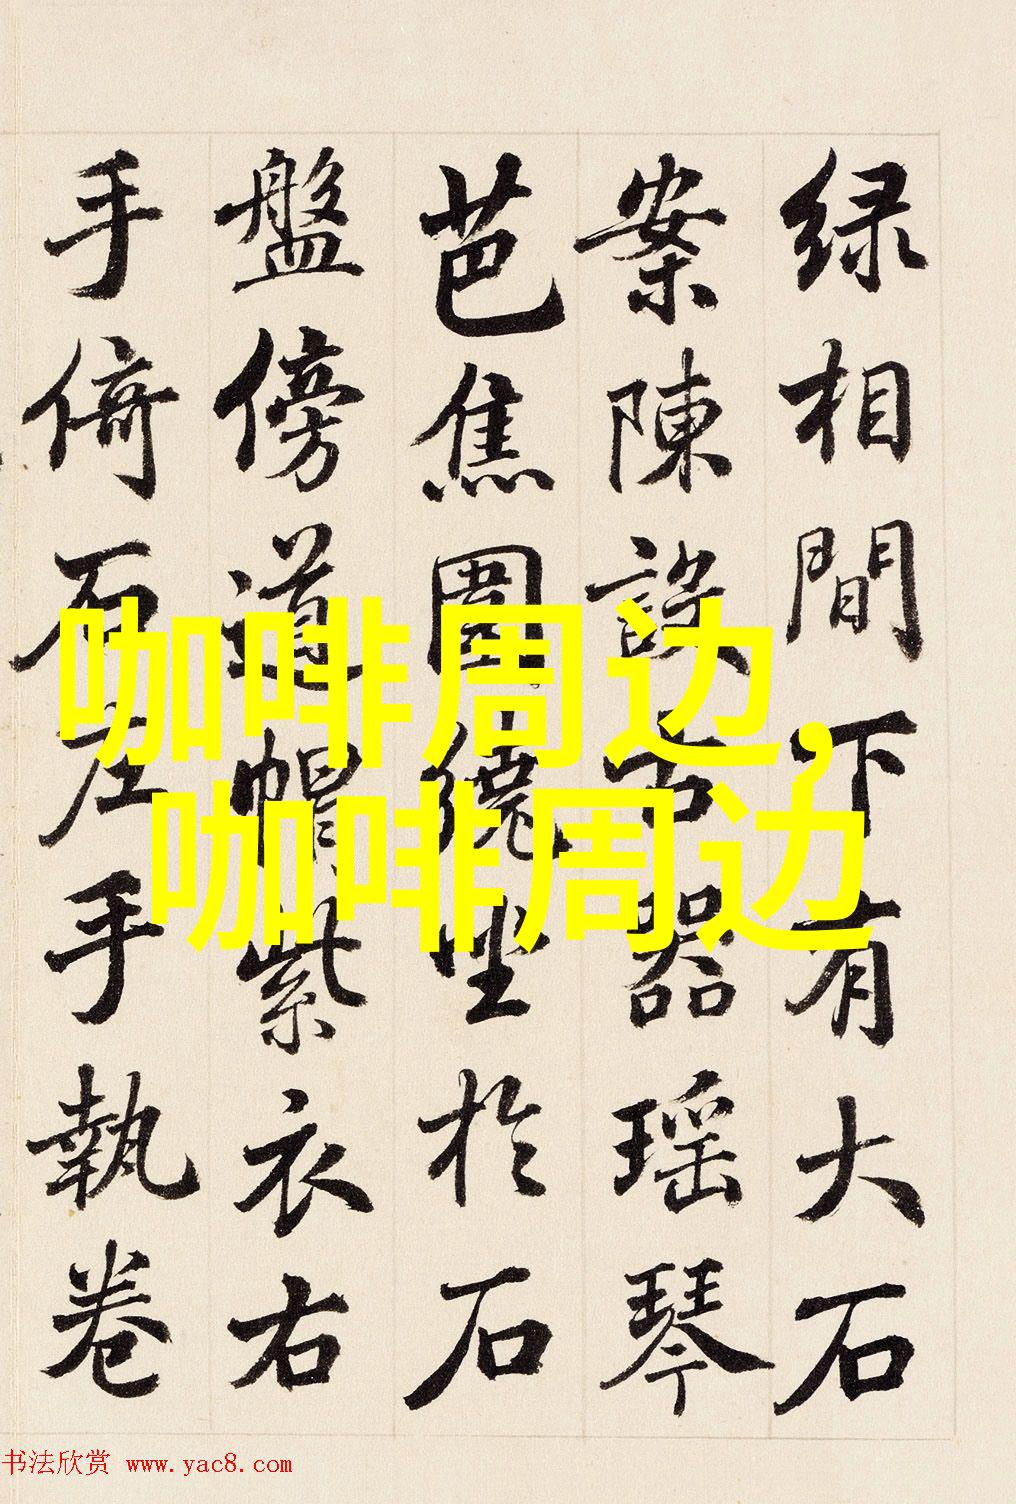 绿相間下有大石
案陳設古器瑶琴
芭焦圍繞坐於石
盤傍道帽紫衣右
手倚石左手執卷
咖啡周边,
咖啡周边
书法欣赏 www.yac8.com